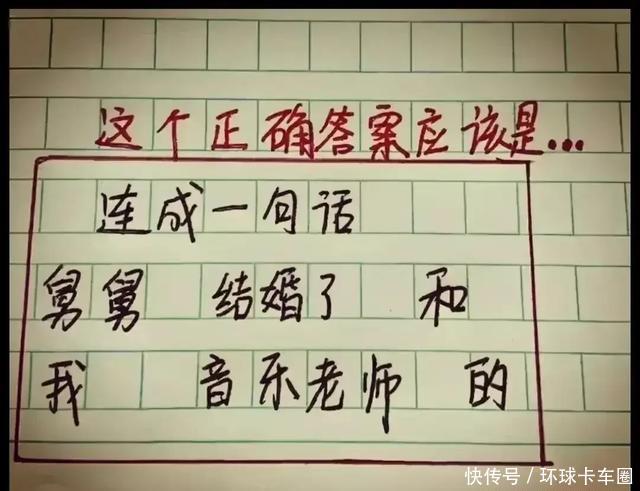 这个正确答案应该是...
连成一句话
舅舅 结婚了 和
我 音乐老师 的
快传号/环球卡车圈